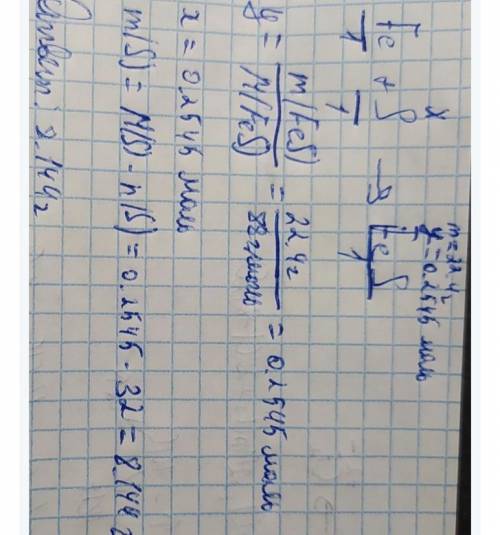 m=22.4г
x y=0.2545 моль
Fe + S → FeS
1 1 1
y = m(FeS) / M(FeS) = 22.4г / 88г/моль = 0.2545 моль
x = 0.2545 моль
m(S) = M(S) · n(S) = 0.2545 · 32 = 8.144г
Ответ: 8.144г